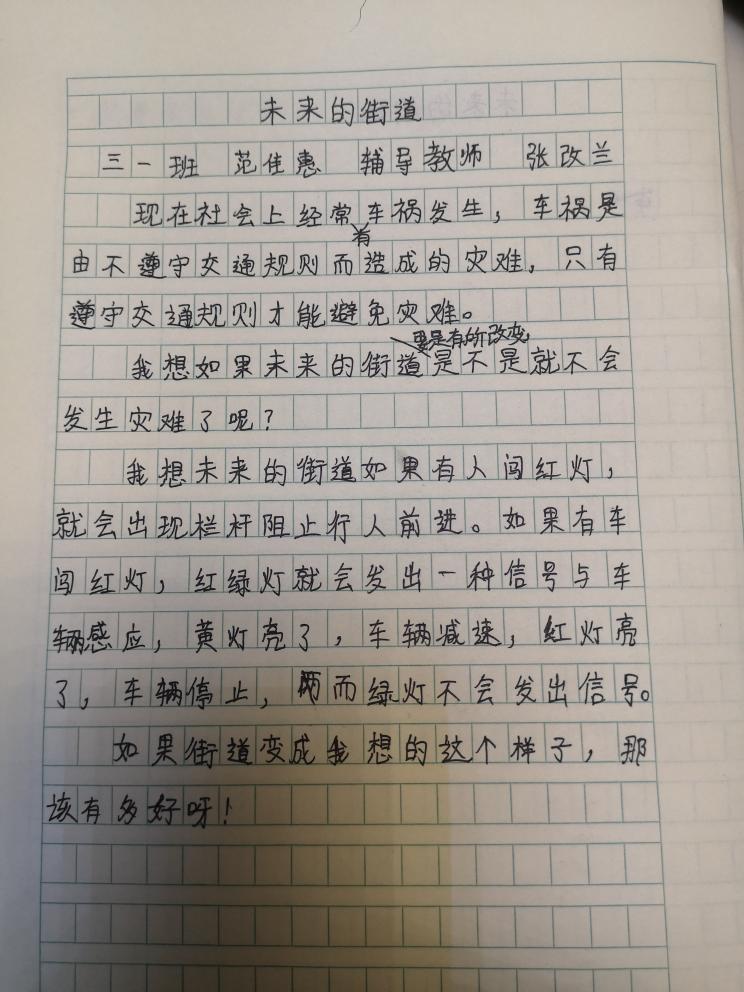 未来的街道
三一班 范佳惠 辅导教师 张改兰
现在社会上经常有车祸发生，车祸是
由不遵守交通规则而造成的灾难，只有
遵守交通规则才能避免灾难。
我想如果未来的街道要是有所改变是不是就不会
发生灾难了呢？
我想未来的街道如果有人闯红灯，
就会出现栏杆阻止行人前进。如果有车
闯红灯，红绿灯就会发出一种信号与车
辆感应，黄灯亮了，车辆减速，红灯亮
了，车辆停止，而绿灯不会发出信号。
如果街道变成我想的这个样子，那
该有多好呀！